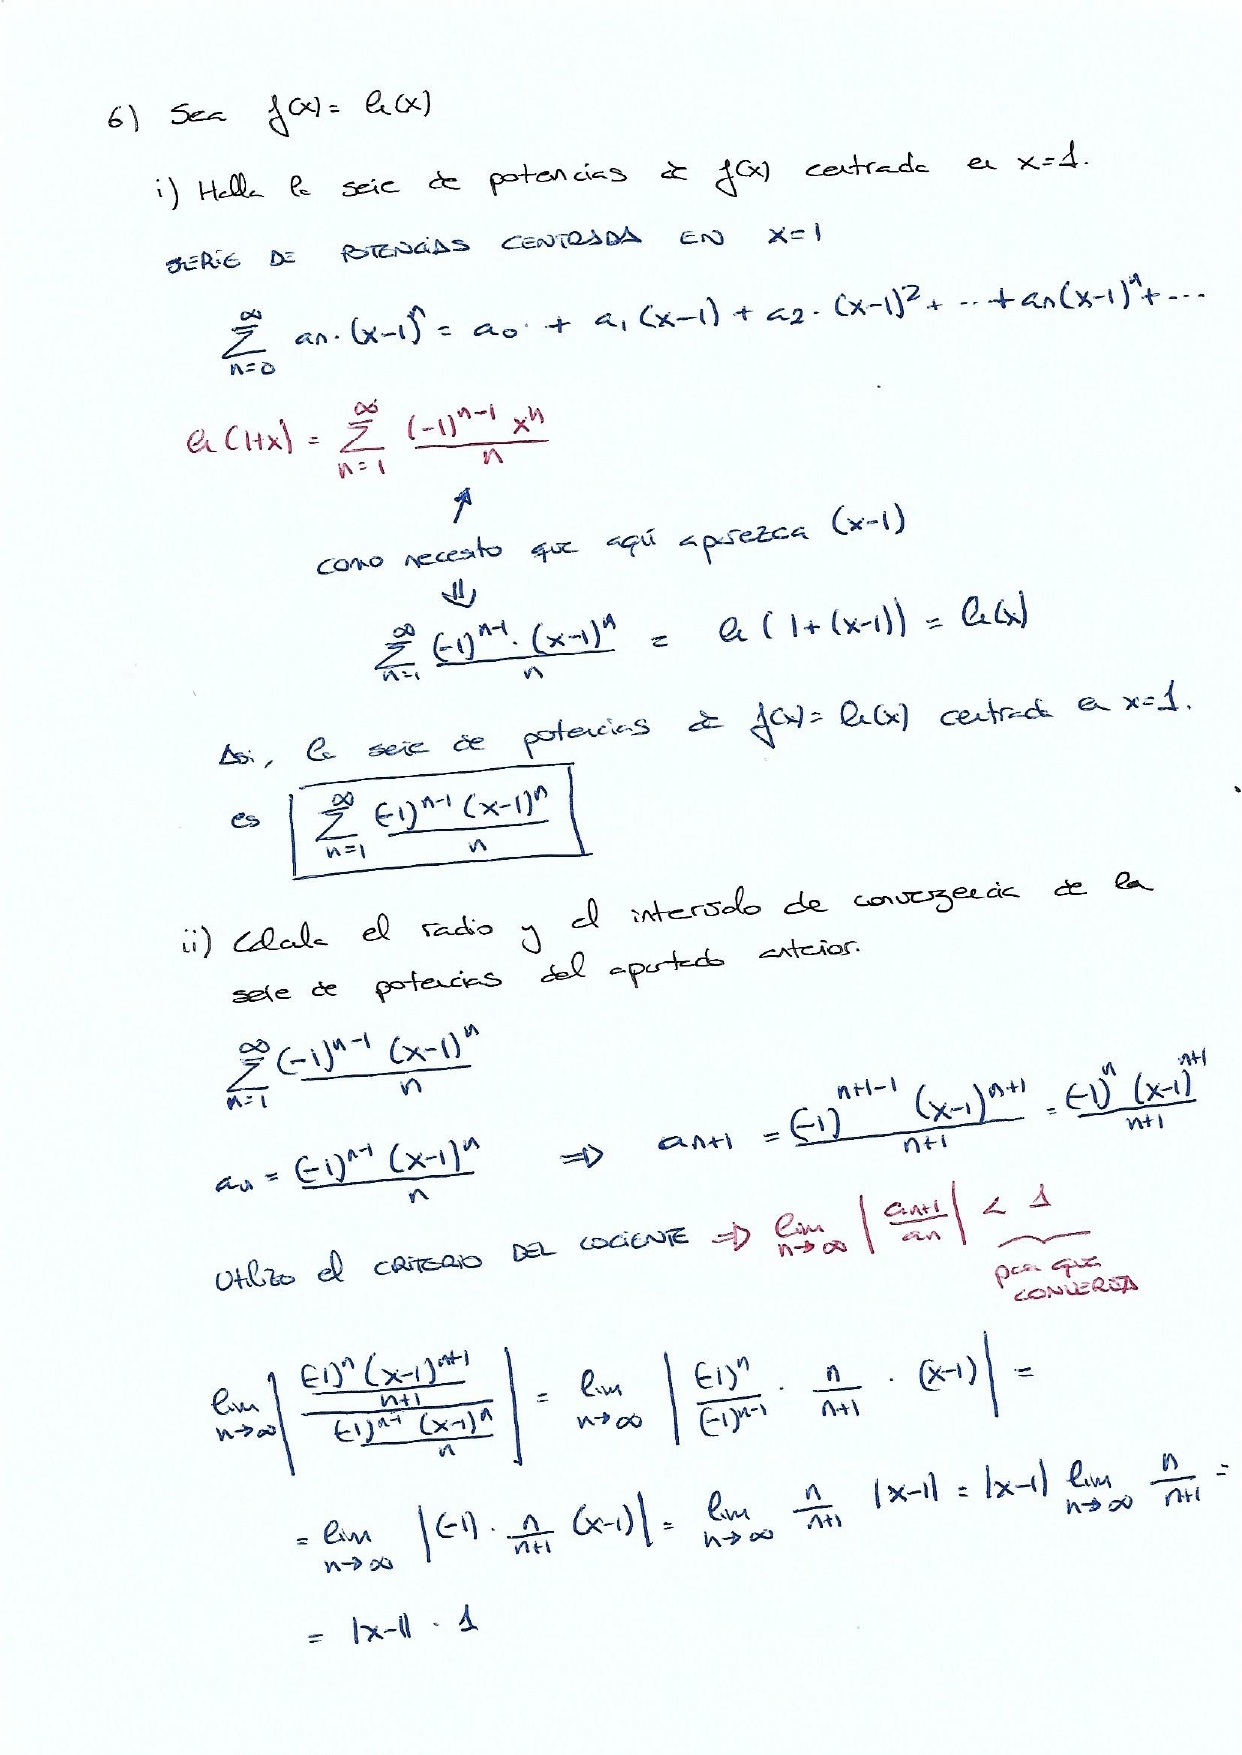 6) Sea f(x) = ln(x)
i) Halla la serie de potencias de f(x) centrada en x=1.
SERIE DE POTENCIAS CENTRADA EN x=1
∑_{n=0}^{∞} an·(x-1)^n = a0 + a1(x-1) + a2·(x-1)^2 + ··· + an(x-1)^n + ···
ln(1+x) = ∑_{n=1}^{∞} (-1)^{n-1} x^n / n
↑
como necesito que aquí aparezca (x-1)
⇓
∑_{n=1}^{∞} (-1)^{n-1}·(x-1)^n / n = ln(1+(x-1)) = ln(x)
Así, la serie de potencias de f(x) = ln(x) centrada en x=1.
es ∑_{n=1}^{∞} (-1)^{n-1} (x-1)^n / n
ii) Calcula el radio y el intervalo de convergencia de la
serie de potencias del apartado anterior.
∑_{n=1}^{∞} (-1)^{n-1} (x-1)^n / n
an = (-1)^{n-1} (x-1)^n / n ⇒ an+1 = (-1)^{n+1-1} (x-1)^{n+1} / n+1 = (-1)^n (x-1)^{n+1} / n+1
Utilizo el CRITERIO DEL COCIENTE ⇒ lim_{n→∞} |an+1 / an| < 1
para que
CONVERJA
lim_{n→∞} | ((-1)^n (x-1)^{n+1} / n+1) / ((-1)^{n-1} (x-1)^n / n) | = lim_{n→∞} | (-1)^n / (-1)^{n-1} · n / n+1 · (x-1) | =
= lim_{n→∞} |(-1) · n / n+1 (x-1)| = lim_{n→∞} n / n+1 |x-1| = |x-1| lim_{n→∞} n / n+1 =
= |x-1| · 1